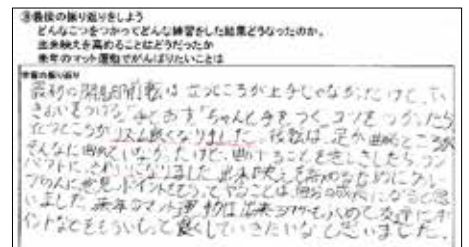 ③最後の振り返りをしよう
どんなこつをつかってどんな練習をした結果どうなったのか。
出来映えを高めることはどうだったか
来年のマット運動でがんばりたいことは
学習の振り返り
最初の開脚前転は立つところが上手じゃなかったけど、い
きおいをつける、手でおす、ちゃんと手をつく、コツをつかったら
立つところがリズム良くなりました。後転は、足が曲がるところが
そんなに曲がっていなかったけど、曲げることを意しきしたらコン
パクトに、きれいになりました。出来映えを高めるためにグルー
プの人に意見、ポイントをもらってやることは自分の成長になると思
いました。来年のマット運動は出来ばえを高めて友達にポ
イントなどをもらいして良くしていきたいなと思いました。